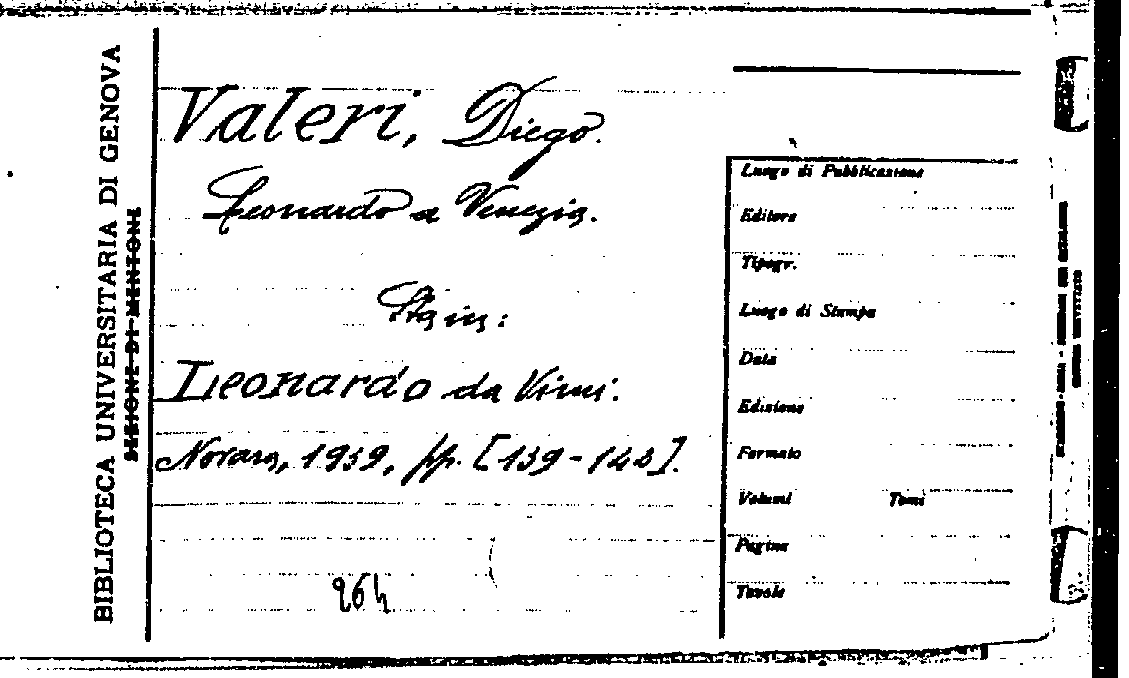 BIBLIOTECA UNIVERSITARIA DI GENOVA
SEZIONE DI MENTONE
Valeri, Diego.
Leonardo a Venezia.
Sta in:
Leonardo da Vinci.
Novara, 1939, pp. [139-142].
264
Luogo di Pubblicazione
Editore
Tipogr.
Luogo di Stampa
Data
Edizione
Formato
Volumi Tomi
Pagine
Tavole